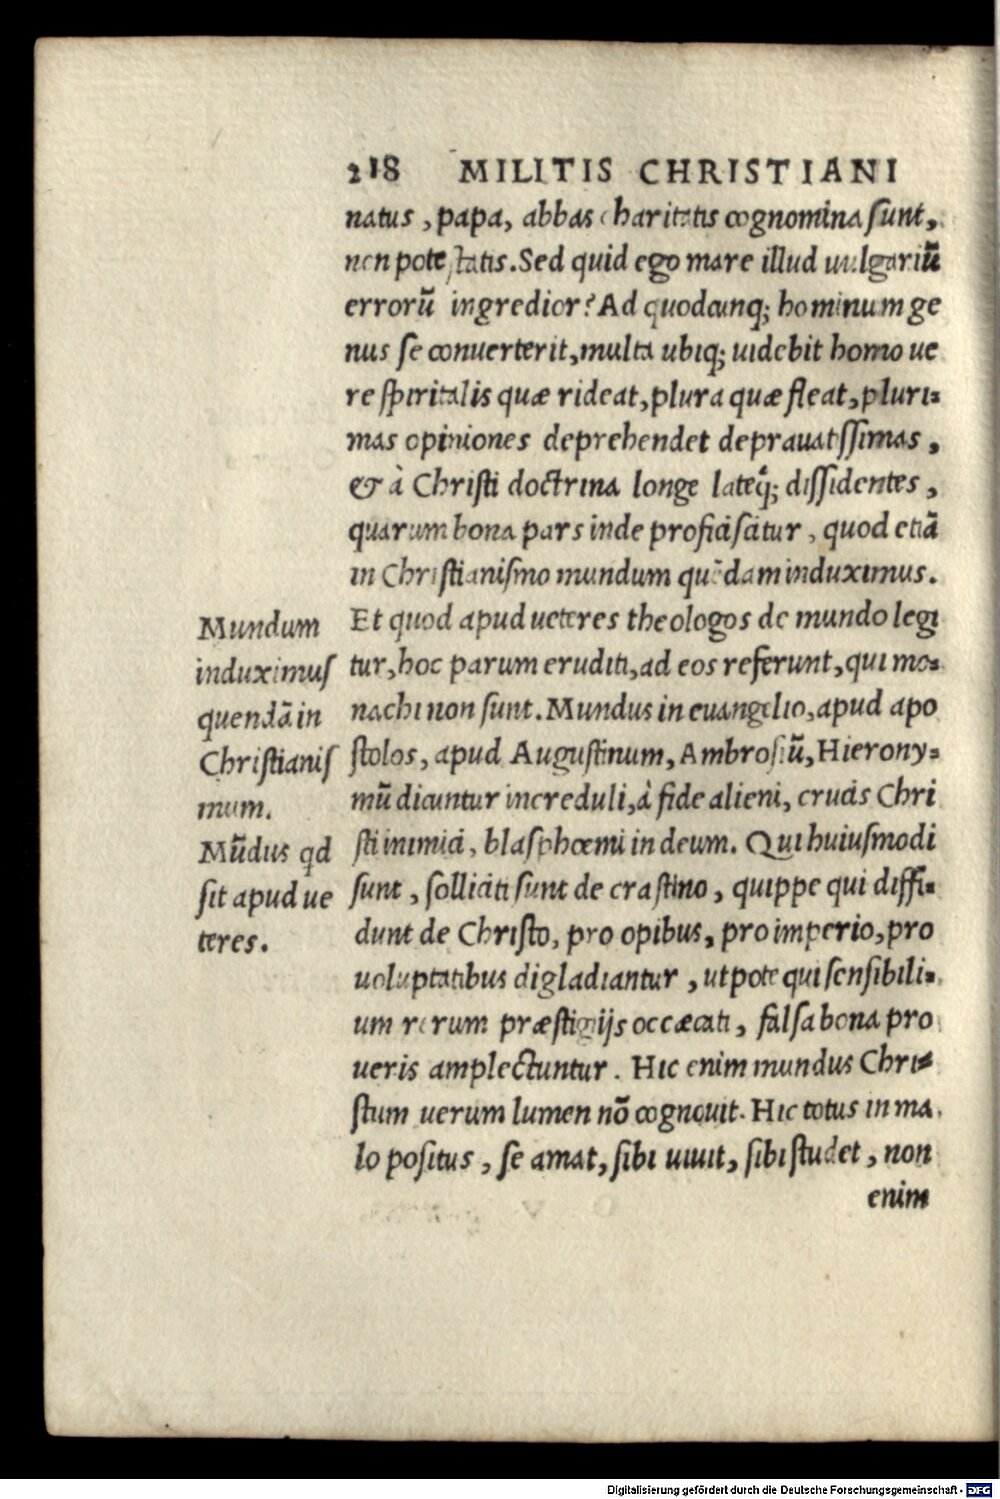 218 MILITIS CHRISTIANI
natus, papa, abbas charitatis cognomina sunt,
non potestatis. Sed quid ego mare illud uulgariũ
errorũ ingredior? Ad quodcunq; hominum ge
nus se conuerterit, multa ubiq; uidebit homo ue
re spiritalis quæ rideat, plura quæ fleat, pluri=
mas opiniones deprehendet deprauatissimas,
& à Christi doctrina longe lateq́; dissidentes,
quarum bona pars inde proficiscitur, quod etiã
in Christianismo mundum quẽdam induximus.
Et quod apud ueteres theologos de mundo legi
tur, hoc parum eruditi, ad eos referunt, qui mo=
nachi non sunt. Mundus in euangelio, apud apo
stolos, apud Augustinum, Ambrosiũ, Hierony=
mũ dicuntur increduli, à fide alieni, crucis Chri
sti inimici, blasphœmi in deum. Qui huiusmodi
sunt, solliciti sunt de crastino, quippe qui diffi=
dunt de Christo, pro opibus, pro imperio, pro
uoluptatibus digladiantur, utpote qui sensibili=
um rerum præstigijs occæcati, falsa bona pro
ueris amplectuntur. Hic enim mundus Chri=
stum uerum lumen nõ cognouit. Hic totus in ma
lo positus, se amat, sibi uiuit, sibi studet, non
enim
Mundum
induximus
quendã in
Christianis
mum.
Mũdus qd
sit apud ue
teres.
Digitalisierung gefördert durch die Deutsche Forschungsgemeinschaft - DFG